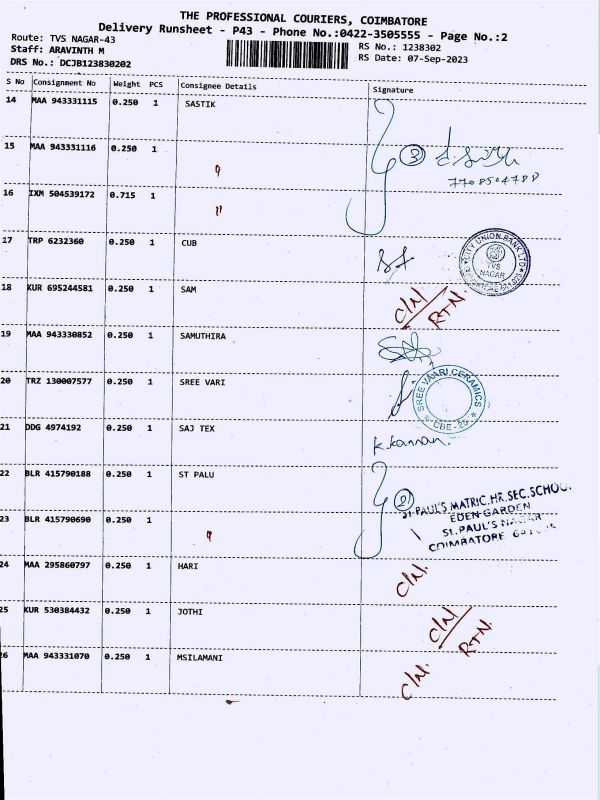 THE PROFESSIONAL COURIERS, COIMBATORE
Delivery Runsheet - P43 - Phone No.:0422-3505555 - Page No.:2
Route: TVS NAGAR-43
RS No.: 1238302
Staff: ARAVINTH M
RS Date: 07-Sep-2023
DRS No.: DCJB123830202
S No Consignment No Weight PCS Consignee Details Signature
14 MAA 943331115 0.250 1 SASTIK
15 MAA 943331116 0.250 1 "
3
7708504788
16 IXM 504539172 0.715 1 "
17 TRP 6232360 0.250 1 CUB
CITY UNION BANK LTD
TVS
NAGAR
18 KUR 695244581 0.250 1 SAM
C/N/
RTN
19 MAA 943330852 0.250 1 SAMUTHIRA
20 TRZ 130007577 0.250 1 SREE VARI
SREE VAARI CERAMICS
CBE-25
21 DDG 4974192 0.250 1 SAJ TEX
K.Kannan.
22 BLR 415790188 0.250 1 ST PALU
2
ST.PAUL'S MATRIC.HR.SEC.SCHOOL
EDEN GARDEN
St.PAUL'S NAGAR
COIMBATORE
23 BLR 415790690 0.250 1 "
24 MAA 295860797 0.250 1 HARI
C/N.
25 KUR 530384432 0.250 1 JOTHI
C/N/
RTN.
26 MAA 943331070 0.250 1 MSILAMANI
C/N.